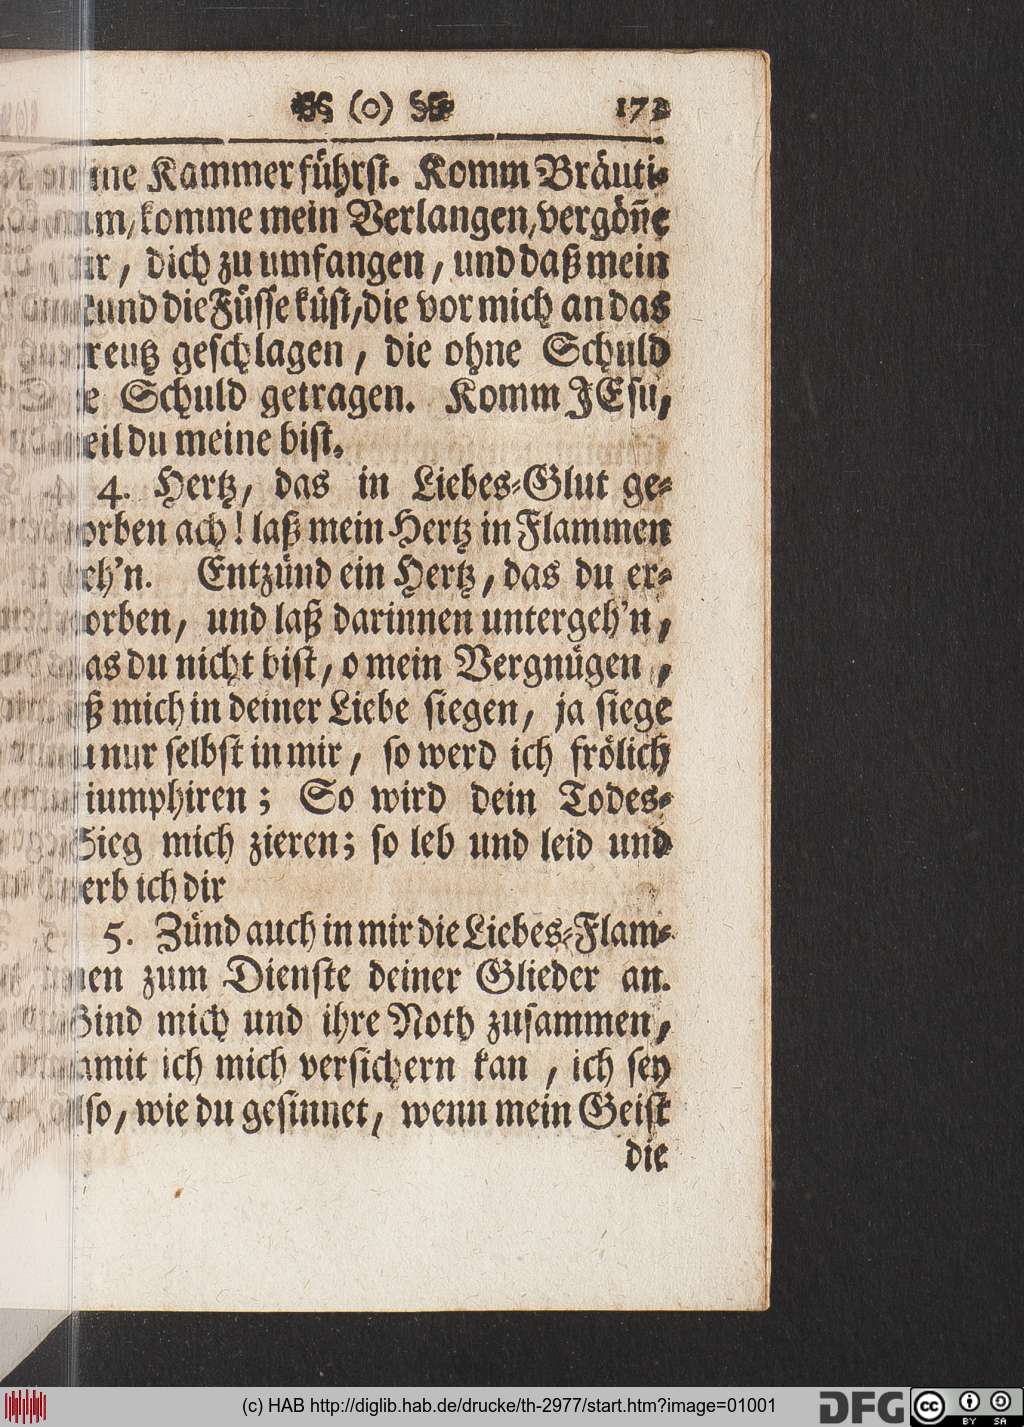 (o) 173
Kammer führst. Komm Bräuti-
komme mein Verlangen, vergöñe
dich zu umfangen, und daß mein
und die Füsse küst, die vor mich an das
geschlagen, die ohne Schuld
Schuld getragen. Komm JEsu,
du meine bist.
4. Hertz, das in Liebes-Glut ge-
ach! laß mein Hertz in Flammen
Entzünd ein Hertz, das du er-
und laß darinnen untergeh'n,
du nicht bist, o mein Vergnügen,
mich in deiner Liebe siegen, ja siege
nur selbst in mir, so werd ich frölich
So wird dein Todes-
Sieg mich zieren; so leb und leid und
ich dir
5. Zünd auch in mir die Liebes-Flam-
zum Dienste deiner Glieder an.
Bind mich und ihre Noth zusammen,
ich mich versichern kan, ich sey
wie du gesinnet, wenn mein Geist
die
(c) HAB http://diglib.hab.de/drucke/th-2977/start.htm?image=01001
DFG
cc BY SA